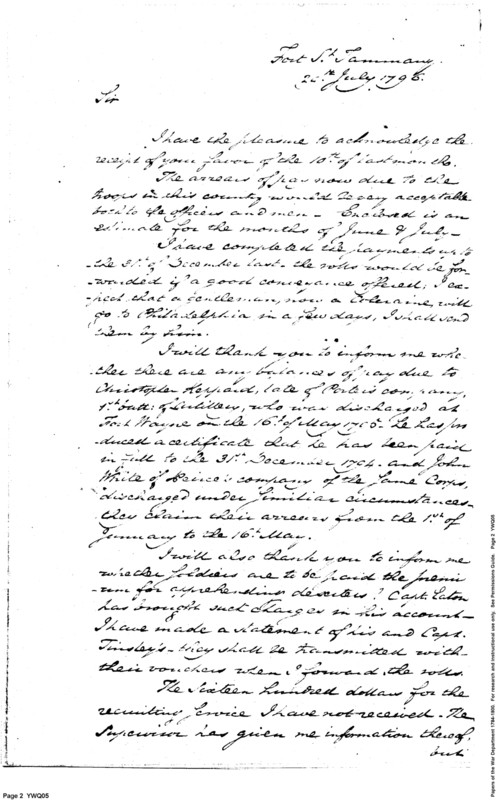 Fort St. Tammany
July 1796.
Sir
I have the pleasure to acknowledge the
receipt of your favor of the 10th of last month.
The arrears of pay now due to the
troops in this country would be very acceptable
both to the officers and men - Enclosed is an
estimate for the months of June & July -
I have completed the payments up to
the 31st of December last - the rolls would be for-
warded if a good conveyance offered; I ex-
pect that a gentleman, now a Coleraine, will
go to Philadelphia in a few days, I shall send
them by him.
I will thank you to inform me whe-
ther there are any balances of pay due to
Christopher Heppard, late of Porter's company,
1st batt: of Artillery, who was discharged at
Fort Wayne on the 16th of May 1796. he has pro
duced a certificate that he has been paid
in full to the 31st December 1794. and John
White of Peirce's company of the same Corps,
discharged under similiar circumstances -
they claim their arrears from the 1st of
January to the 16th May.
I will also thank you to inform me
whether soldiers are to be paid the premi
um for apprehending deserters? Capt. Eaton
has brought such charges in his account -
I have made a statement of his and Capt.
Tinsley's - they shall be transmitted with
their vouchers when I forward the rolls.
The sixteen hundred dollars for the
recruiting service I have not received - The
Supervisor has given me information thereof.
but
Page 2 YWQ05
Papers of the War Department 1784-1800. For research and instructional use only. See Permissions Guide. Page 2 YWQ05